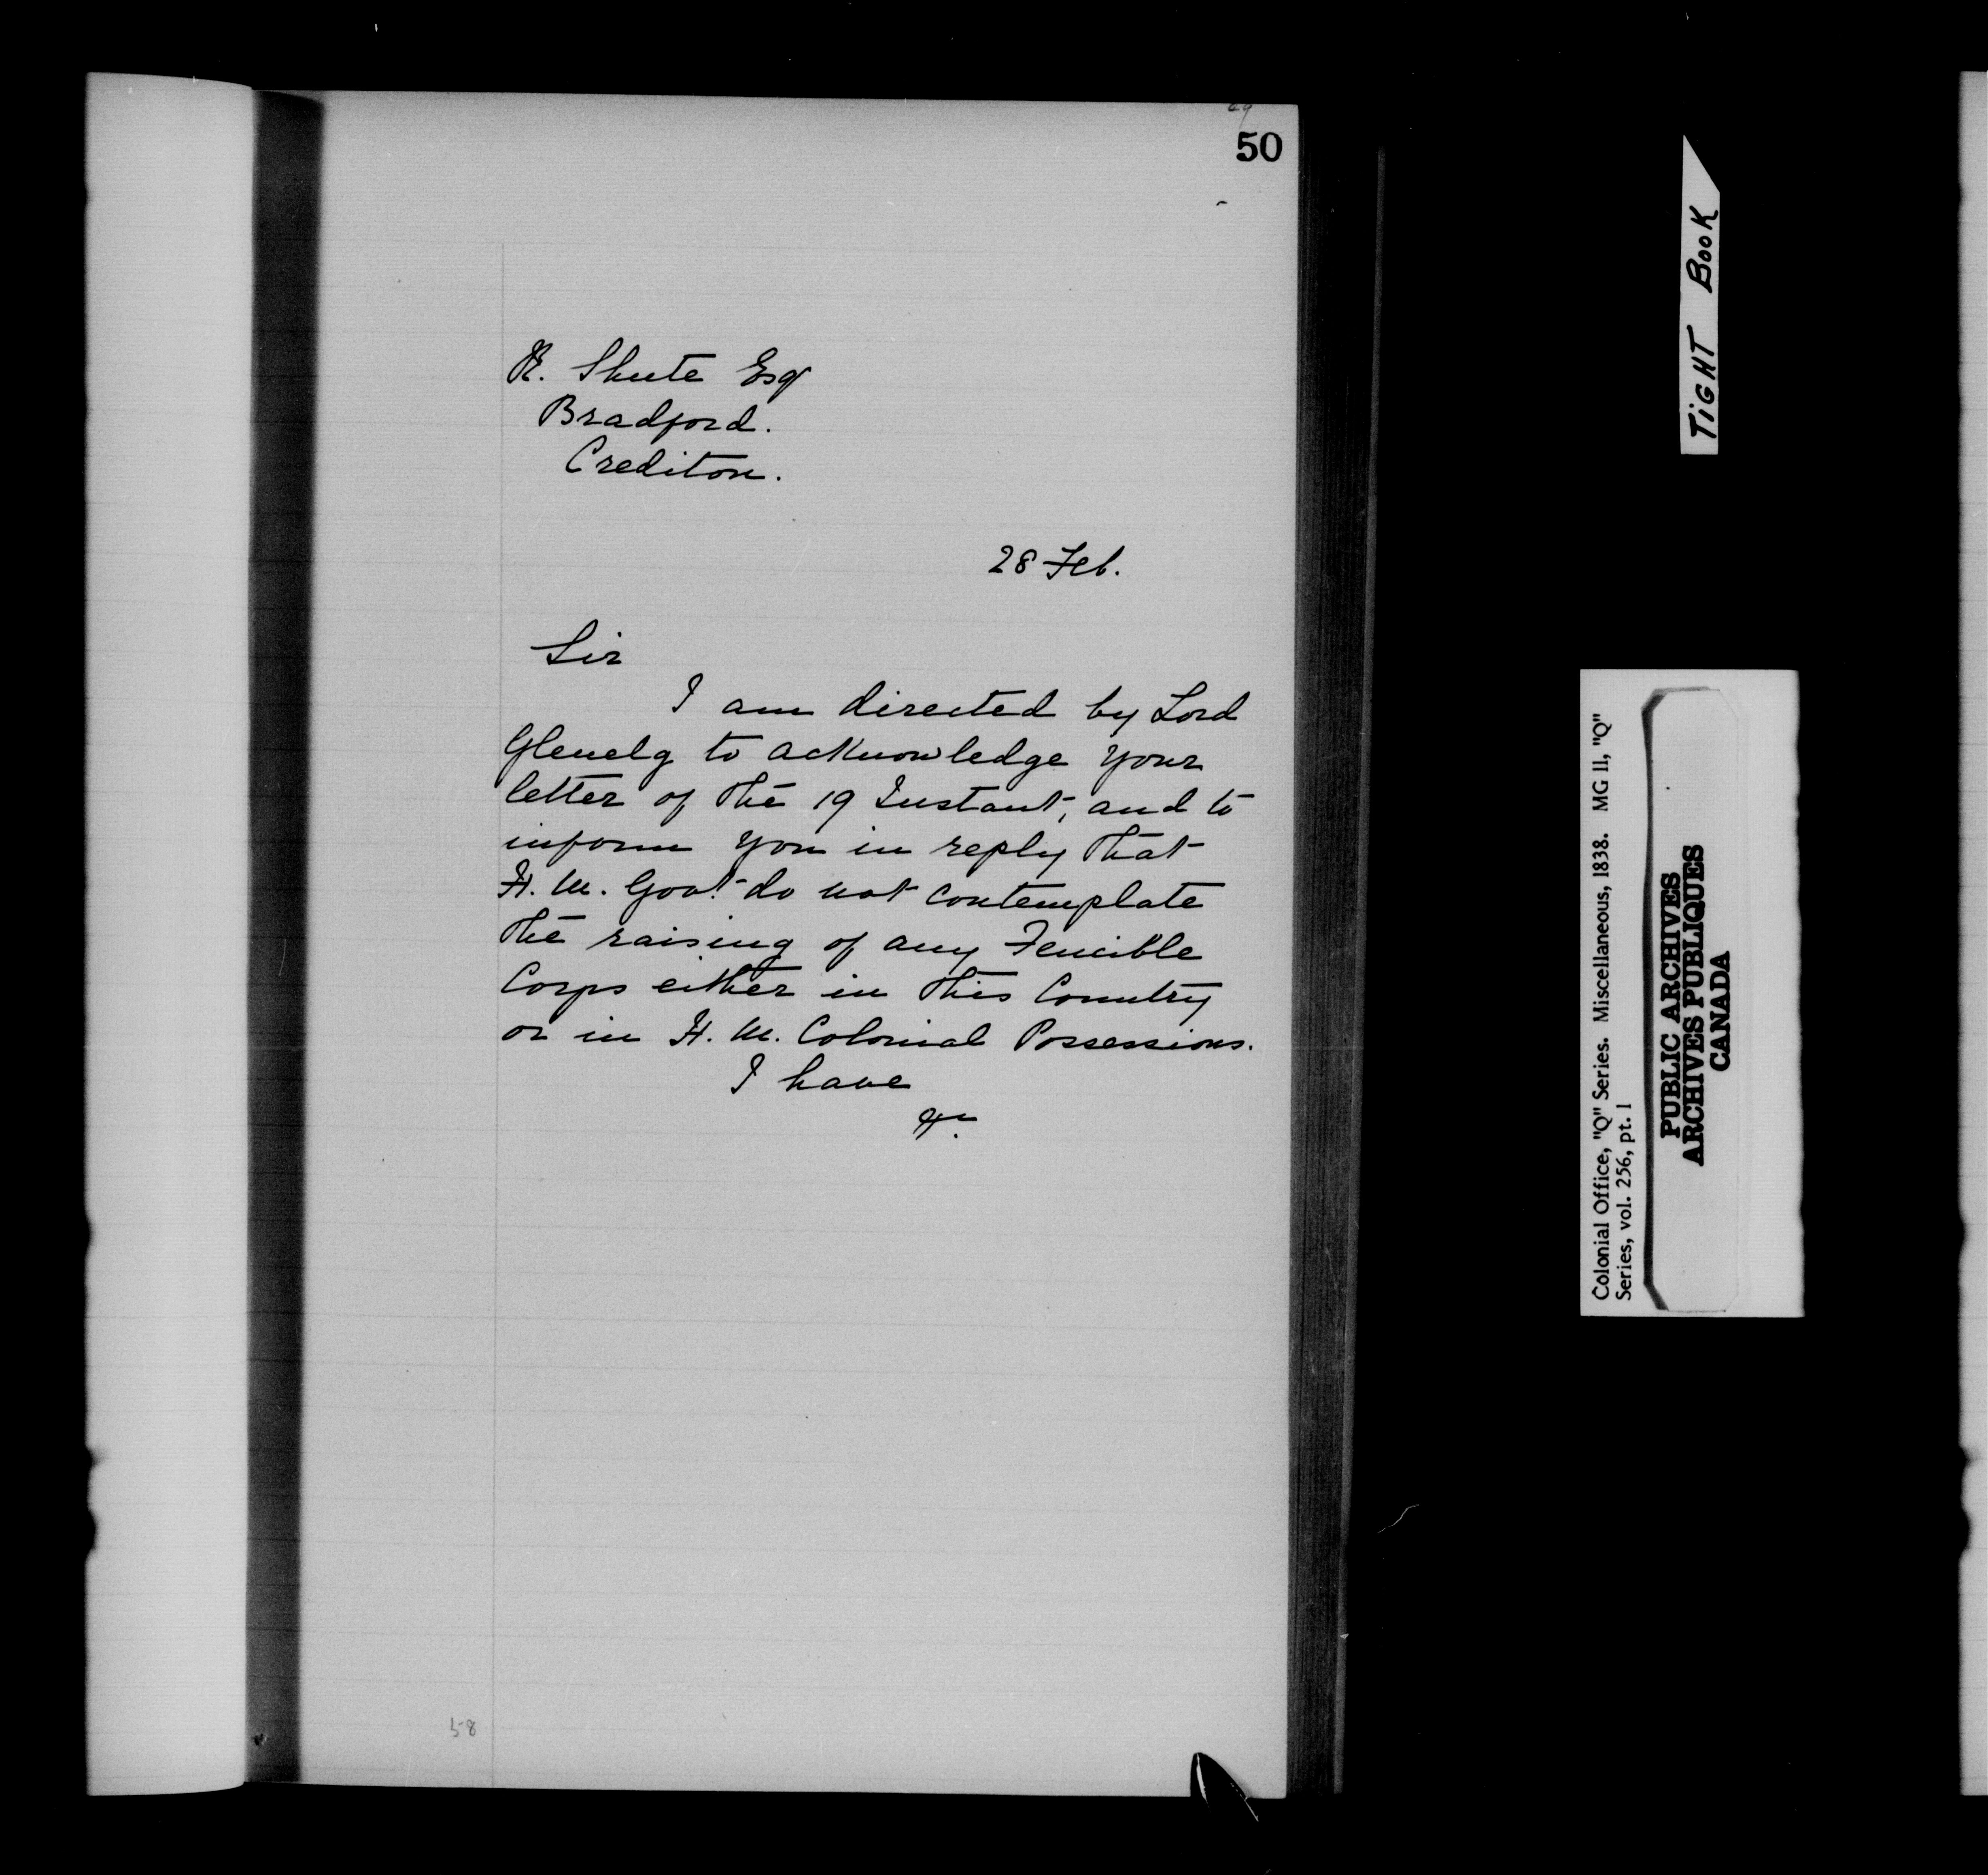 50
R. Shute Esqr
Bradford.
Crediton.
28 Feb.
Sir
I am directed by Lord
Glenelg to acknowledge your
letter of the 19 Instant, and to
inform you in reply that
H. M. Govt. do not contemplate
the raising of any Fencible
Corps either in this Country
or in H. M. Colonial Possessions.
I have
&c.
58
TiGHT BooK
Colonial Office, "Q" Series. Miscellaneous, 1838. MG 11, "Q"
Series, vol. 256, pt. 1
PUBLIC ARCHIVES
ARCHIVES PUBLIQUES
CANADA